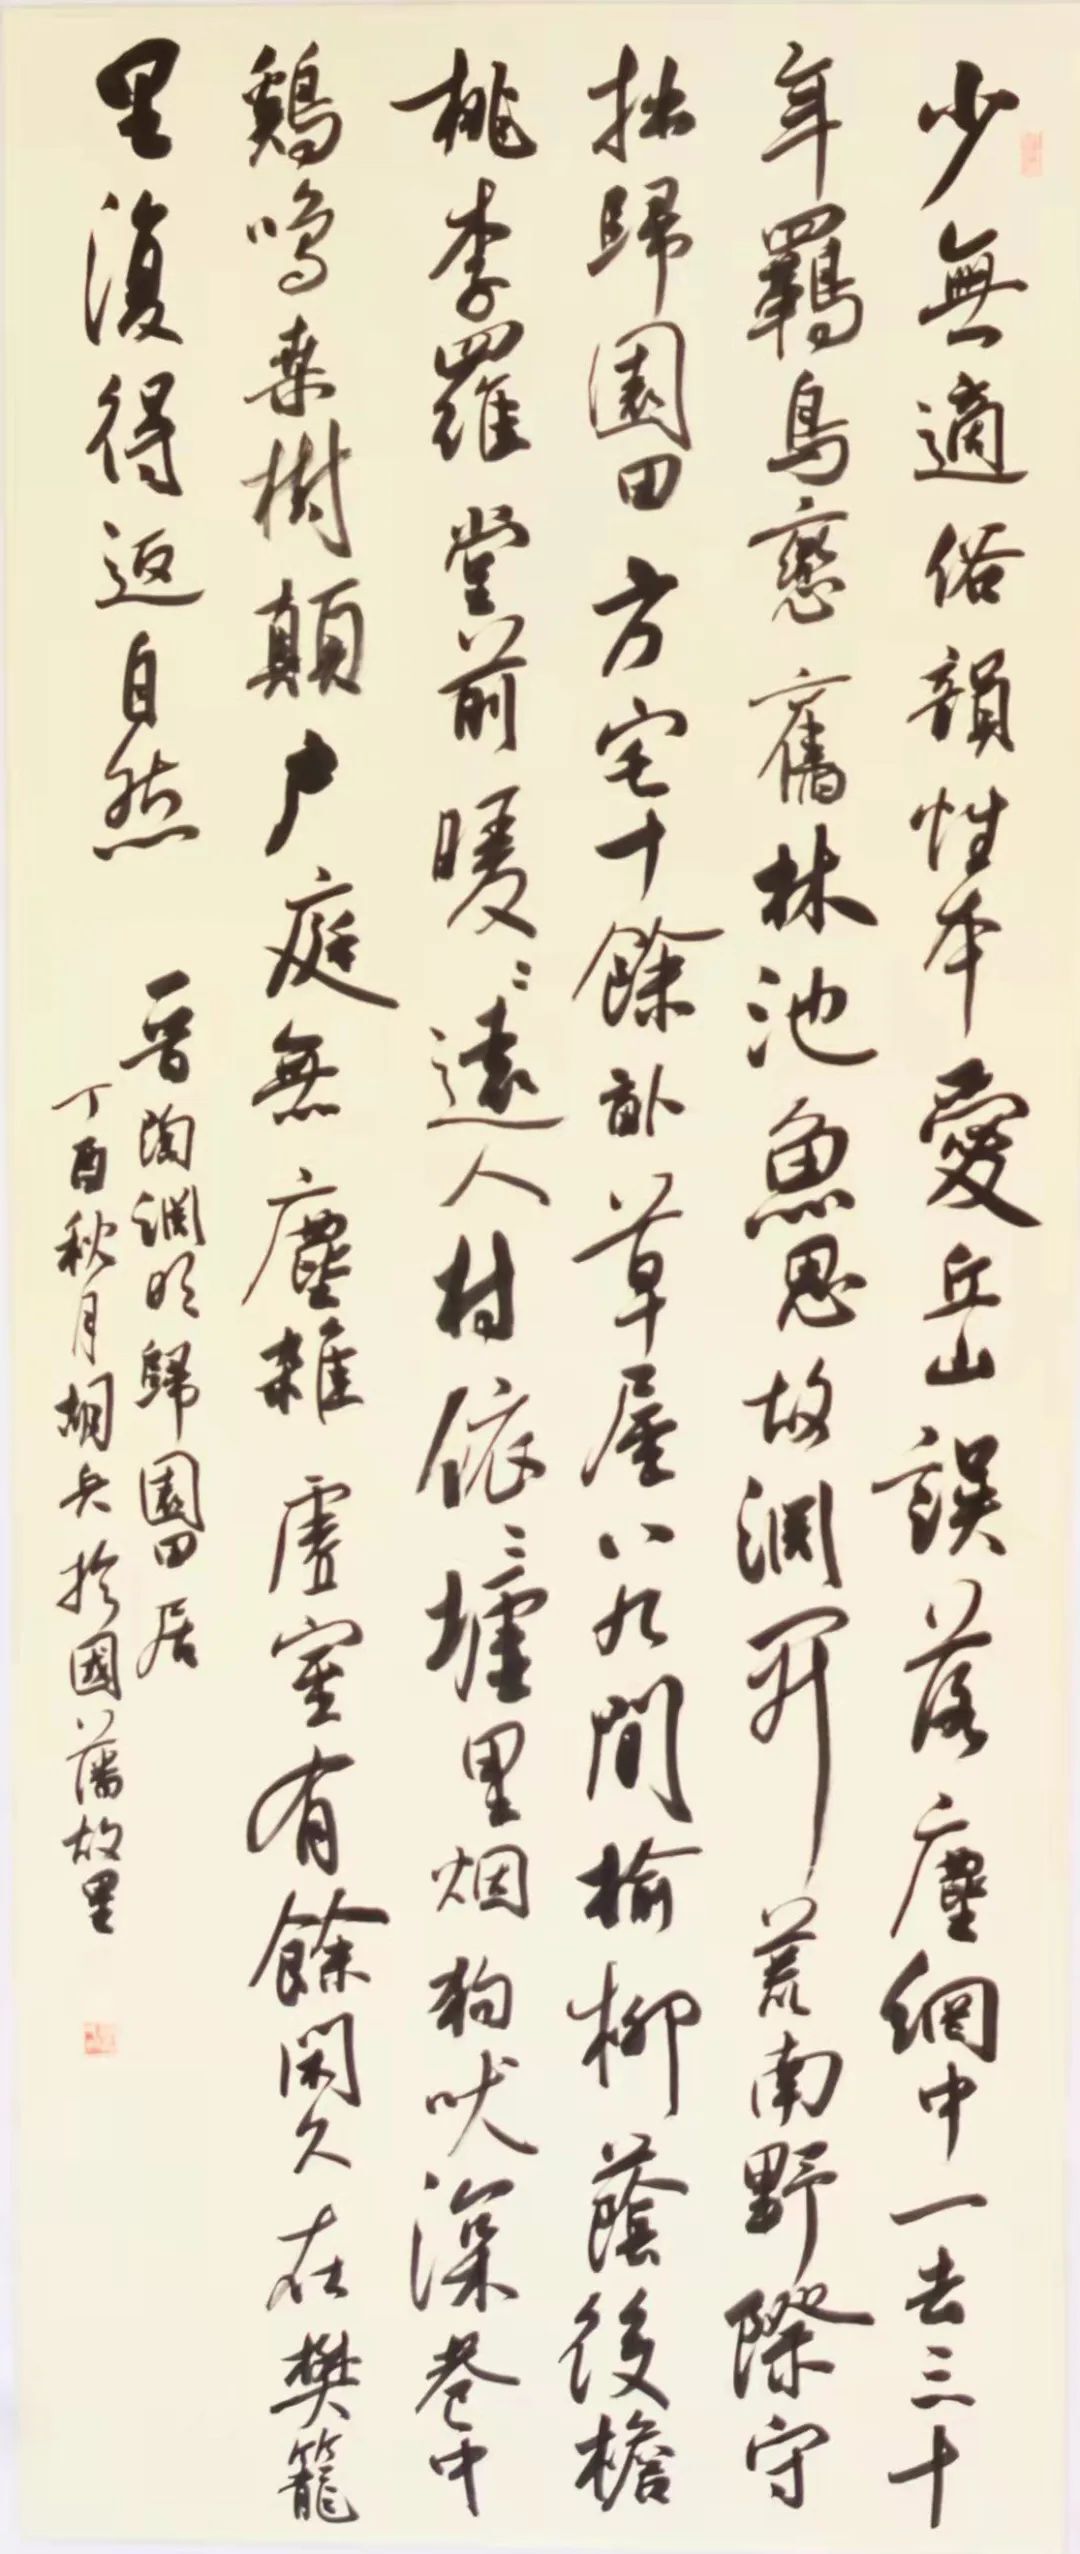 少無適俗韻性本愛丘山誤落塵網中一去三十
年羈鳥戀舊林池魚思故淵開荒南野際守
拙歸園田方宅十餘畝草屋八九間榆柳蔭後檐
桃李羅堂前暖〻遠人村依〻墟里烟狗吠深巷中
鷄鳴桑樹顛户庭無塵雜虚室有餘閑久在樊籠
里復得返自然
晋陶渊明歸園田居
丁酉秋月胡兵於國藩故里